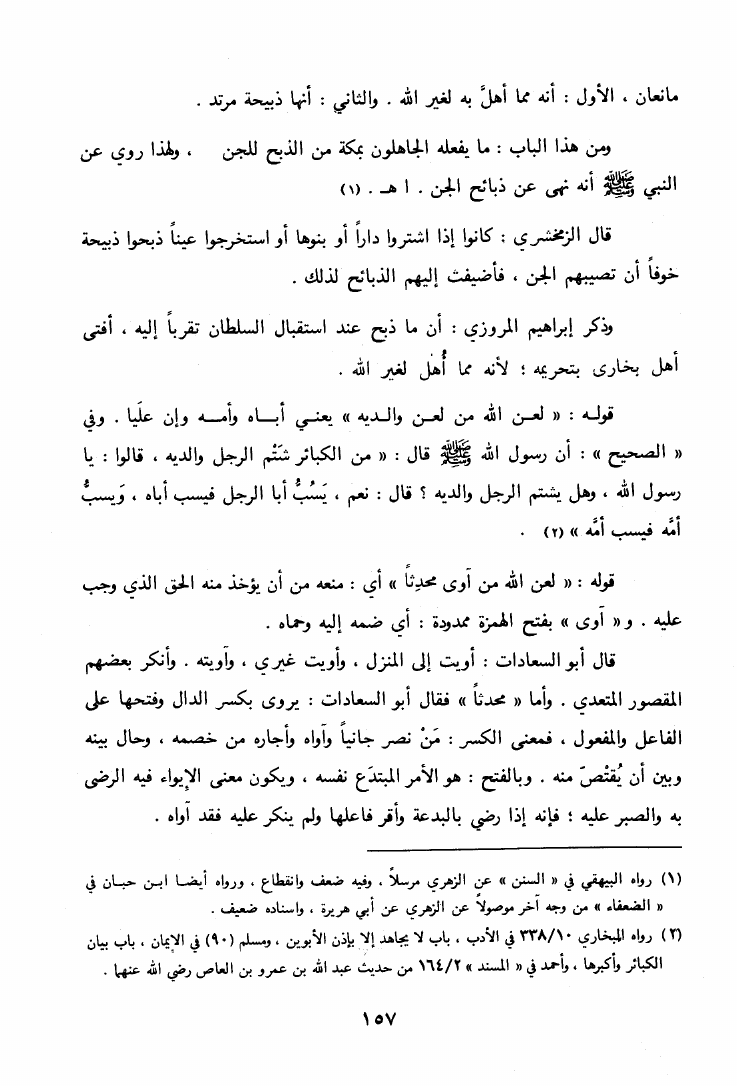 مانعان ، الأول : أنه مما أهلَّ به لغير الله . والثاني : أنها ذبيحة مرتد .
ومن هذا الباب : ما يفعله الجاهلون بمكة من الذبح للجن ، ولهذا روي عن
النبي ﷺ أنه نهى عن ذبائح الجن . ا هـ . (١)
قال الزمخشري : كانوا إذا اشتروا داراً أو بنوها أو استخرجوا عيناً ذبحوا ذبيحة
خوفاً أن تصيبهم الجن ، فأضيفت إليهم الذبائح لذلك .
وذكر إبراهيم المروزي : أن ما ذبح عند استقبال السلطان تقرباً إليه ، أفتى
أهل بخارى بتحريمه ؛ لأنه مما أُهل لغير الله .
قولـه : « لعـن الله من لعـن والـديه » يعنـي أبـاه وأمـه وإن علَيا . وفي
« الصحيح » : أن رسول الله ﷺ قال : « من الكبائر شَتْم الرجل والديه ، قالوا : يا
رسول الله ، وهل يشتم الرجل والديه ؟ قال : نعم ، يَسُبُّ أبا الرجل فيسب أباه ، وَيسبُّ
أمَّه فيسب أمَّه » (٢) .
قوله : « لعن الله من آوى محدِثاً » أي : منعه من أن يؤخذ منه الحق الذي وجب
عليه . و « آوى » بفتح الهمزة ممدودة : أي ضمه إليه وحماه .
قال أبو السعادات : أويت إلى المنزل ، وأويت غيري ، وآويته . وأنكر بعضهم
المقصور المتعدي . وأما « محدثاً » فقال أبو السعادات : يروى بكسر الدال وفتحها على
الفاعل والمفعول ، فمعنى الكسر : مَنْ نصر جانياً وآواه وأجاره من خصمه ، وحال بينه
وبين أن يُقتْصّ منه . وبالفتح : هو الأمر المبتدَع نفسه ، ويكون معنى الإيواء فيه الرضى
به والصبر عليه ؛ فإنه إذا رضي بالبدعة وأقر فاعلها ولم ينكر عليه فقد آواه .
(١) رواه البيهقي في « السنن » عن الزهري مرسلاً ، وفيه ضعف وانقطاع ، ورواه أيضـا ابـن حبـان في
« الضعفاء » من وجه آخر موصولاً عن الزهري عن أبي هريرة ، واسناده ضعيف .
(٢) رواه البخاري ٣٣٨/١٠ في الأدب ، باب لا يجاهد إلا بإذن الأبوين ، ومسلم (٩٠) في الإيمان ، باب بيان
الكبائر وأكبرها ، وأحمد في « المسند » ١٦٤/٢ من حديث عبد الله بن عمرو بن العاص رضي الله عنهما .
١٥٧